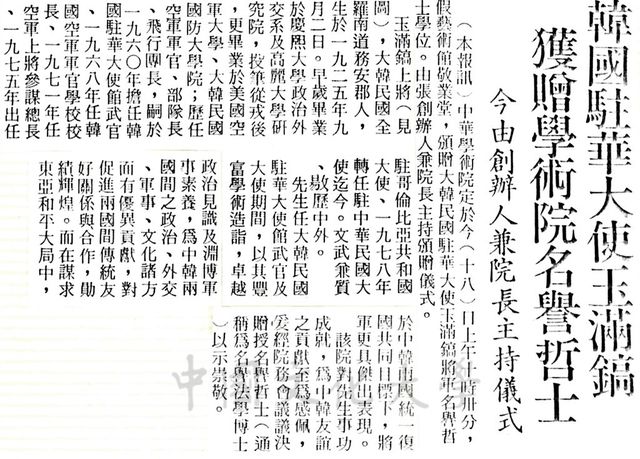 韓國駐華大使玉滿鎬
獲贈學術院名譽哲士
今由創辦人兼院長主持儀式
（本報訊）中華學術院定於今（十八）日上午十時卅分，
假藝術館敬業堂，頒贈大韓民國駐華大使玉滿鎬將軍名譽哲
士學位。由張創辦人兼院長主持頒贈儀式。
玉滿鎬上將（見
圖），大韓民國全
羅南道務安郡人，
生於一九二五年九
月二日。早歲畢業
於慶熙大學政治外
交系及高麗大學研
究院，投筆從戎後
，更畢業於美國空
軍大學、大韓民國
國防大學院；歷任
空軍軍官、部隊長
、飛行團長，嗣於
一九六○年擔任韓
國駐華大使館武官
、一九六八年任韓
國空軍軍官學校校
長、一九七一年任
空軍上將參謀總長
、一九七五年出任
駐哥倫比亞共和國
大使、一九七八年
轉任駐中華民國大
使迄今。文武兼質
、敭歷中外。
先生任大韓民國
駐華大使館武官及
大使期間，以其豐
富學術造詣，卓越
政治見識及淵博軍
事素養，為中韓兩
國間之政治、外交
、軍事、文化諸方
面而有優異貢獻，對
促進兩國間傳統友
好關係與合作，勛
績輝煌。而在謀求
東亞和平大局中，
於中韓兩國統一復
國共同目標下，將
軍更具傑出表現。
該院對先生事功
成就，為中韓友誼
之貢獻至為感佩，
爰經院務會議議決
贈授名譽哲士（通
稱為名譽法學博士
）以示崇敬。
中國文化大學